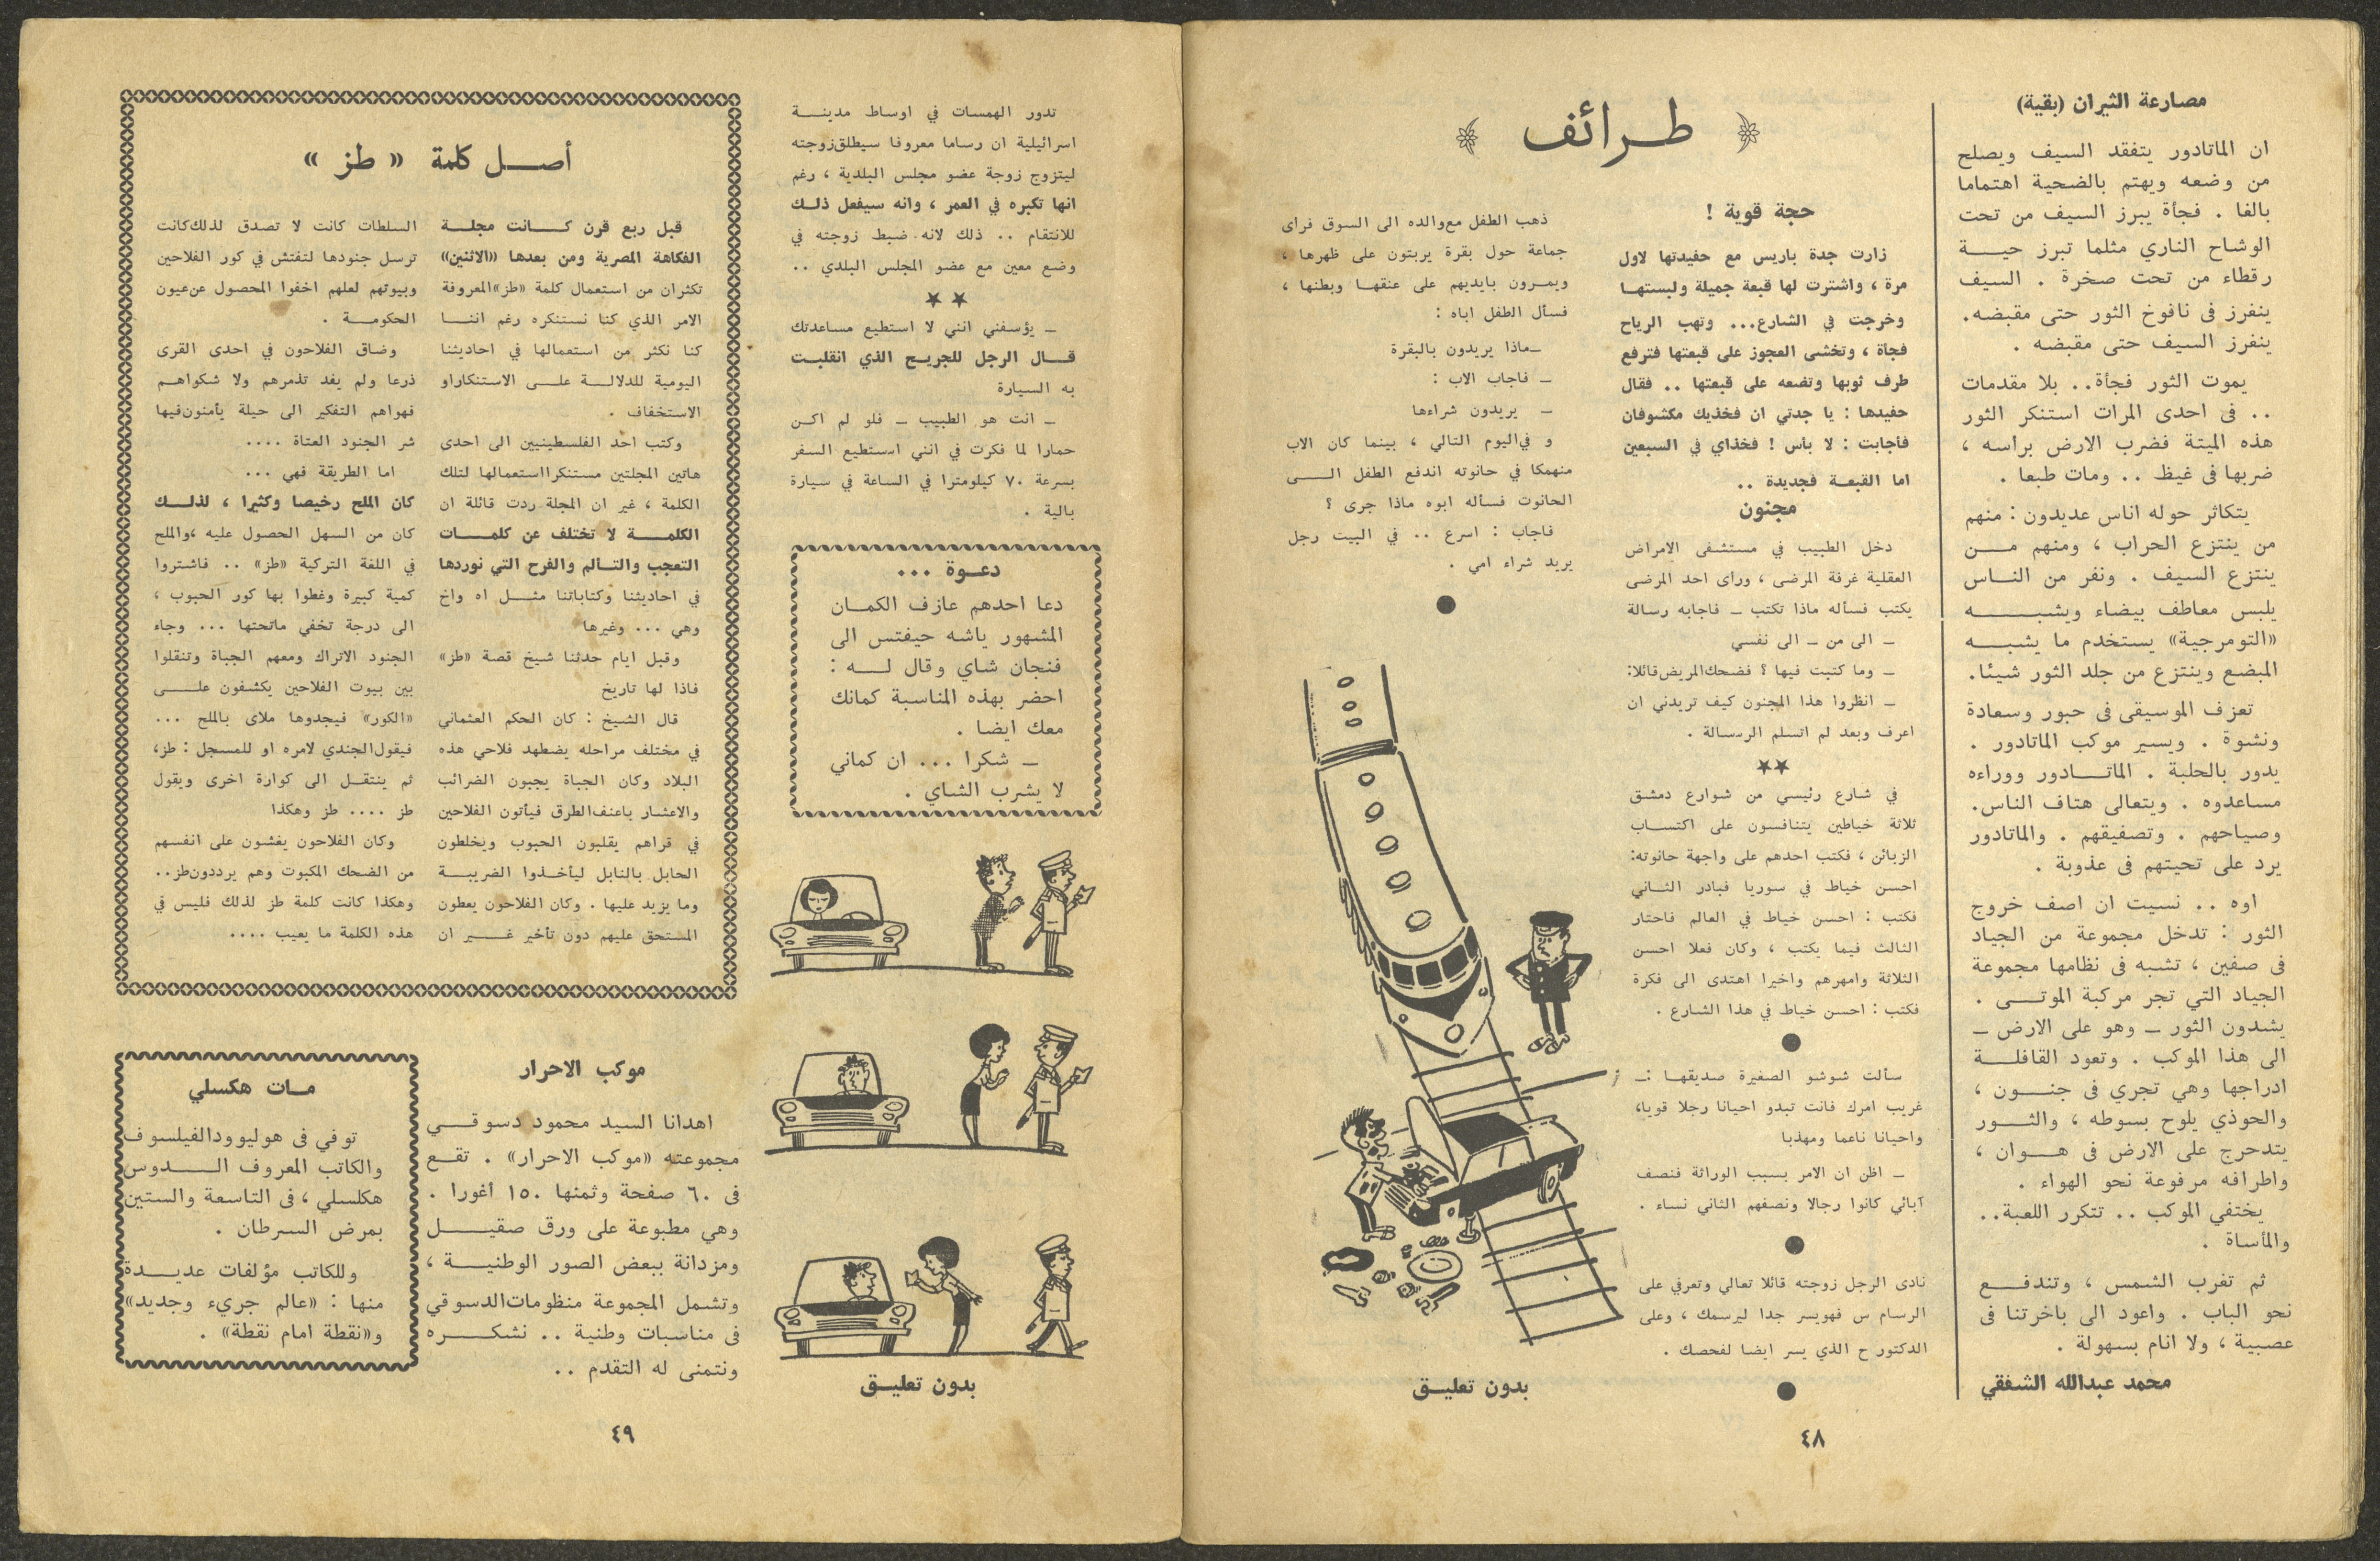 مصارعة الثيران (بقية)
ان الماتادور يتفقد السيف ويصلح
من وضعه ويهتم بالضحية اهتماما
بالغا . فجأة يبرز السيف من تحت
الوشاح الناري مثلما تبرز حيـــة
رقطاء من تحت صخرة . السيف
ينغرز فى نافوخ الثور حتى مقبضه.
ينغرز السيف حتى مقبضه .
يموت الثور فجأة.. بلا مقدمات
.. فى احدى المرات استنكر الثور
هذه الميتة فضرب الارض برأسه ،
ضربها فى غيظ .. ومات طبعا .
يتكاثر حوله اناس عديدون : منهم
من ينتزع الحراب ، ومنهم مــن
ينتزع السيف . ونفر من النــاس
يلبس معاطف بيضاء ويشبــــه
«التومرجية» يستخدم ما يشبــه
المبضع وينتزع من جلد الثور شيئا.
تعزف الموسيقى فى حبور وسعادة
ونشوة . ويسير موكب الماتادور .
يدور بالحلبة . الماتــادور ووراءه
مساعدوه . ويتعالى هتاف الناس.
وصياحهم . وتصفيقهم . والماتادور
يرد على تحيتهم فى عذوبة .
اوه .. نسيت ان اصف خروج
الثور : تدخل مجموعة من الجياد
فى صفين ، تشبه فى نظامها مجموعة
الجياد التي تجر مركبة الموتــى .
يشدون الثور ــ وهو على الارض ــ
الى هذا الموكب . وتعود القافلــة
ادراجها وهي تجري فى جنــون ،
والحوذي يلوح بسوطه ، والثــور
يتدحرج على الارض فى هــوان ،
واطرافه مرفوعة نحو الهواء .
يختفي الموكب .. تتكرر اللعبة..
والمأساة .
ثم تغرب الشمس ، وتندفــع
نحو الباب . واعود الى باخرتنا فى
عصبية ، ولا انام بسهولة .
محمد عبدالله الشفقي
طــرائف
حجة قوية !
زارت جدة باريس مع حفيدتها لاول
مرة ، واشترت لها قبعة جميلة ولبستهـا
وخرجت في الشارع... وتهب الرياح
فجأة ، وتخشى العجوز على قبعتها فترفع
طرف ثوبها وتضعه على قبعتها .. فقال
حفيدها : يا جدتي ان فخذيك مكشوفان
فأجابت : لا بأس ! فخذاي في السبعين
اما القبعـة فجديدة ..
مجنون
دخل الطبيب في مستشفى الامراض
العقلية غرفة المرضى ، ورأى احد المرضى
يكتب فسأله ماذا تكتب ــ فاجابه رسالة
ــ الى من ــ الى نفسي
ــ وما كتبت فيها ؟ فضحك المريض قائلا:
ــ انظروا هذا المجنون كيف تريدني ان
اعرف وبعد لم اتسلم الرسالة .
★★
في شارع رئيسي من شوارع دمشق
ثلاثة خياطين يتنافسون على اكتسـاب
الزبائن ، فكتب احدهم على واجهة حانوته:
احسن خياط في سوريا فبادر الثـاني
فكتب : احسن خياط في العالم فاحتار
الثالث فيما يكتب ، وكان فعلا احسن
الثلاثة وامهرهم واخيرا اهتدى الى فكرة
فكتب : احسن خياط في هذا الشارع .
سألت شوشو الصغيرة صديقهـا :ــ
غريب امرك فانت تبدو احيانا رجلا قويا،
واحيانا ناعما ومهذبا
ــ اظن ان الامر بسبب الوراثة فنصف
آبائي كانوا رجالا ونصفهم الثاني نساء .
نادى الرجل زوجته قائلا تعالي وتعرفي على
الرسام س فهويسر جدا ليرسمك ، وعلى
الدكتور ح الذي يسر ايضا لفحصك .
ذهب الطفل مع والده الى السوق فرأى
جماعة حول بقرة يربتون على ظهرها ،
ويمــرون بايديهم على عنقهـا وبطنها ،
فسأل الطفل اباه :
ــ ماذا يريدون بالبقرة
ــ فاجاب الاب :
ــ يريدون شراءها
و في اليوم التالي ، بينما كان الاب
منهمكا في حانوته اندفع الطفل الــى
الحانوت فسأله ابوه ماذا جرى ؟
فاجاب : اسرع .. في البيت رجل
يريد شراء امي .
بدون تعليــق
٤٨
تدور الهمسات في اوساط مدينــة
اسرائيلية ان رساما معروفا سيطلق زوجته
ليتزوج زوجة عضو مجلس البلدية ، رغم
انها تكبره في العمر ، وانه سيفعل ذلـك
للانتقام .. ذلك لانه ضبط زوجته في
وضع معين مع عضو المجلس البلدي ..
★ ★
ــ يؤسفني انني لا استطيع مساعدتك
قــال الرجل للجريــح الذي انقلبــت
به السيارة
ــ انت هو الطبيب ــ فلو لم اكـن
حمارا لما فكرت في انني استطيع السفر
بسرعة ٧٠ كيلومترا في الساعة في سيارة
بالية .
دعــوة ...
دعا احدهم عازف الكمــان
المشهور ياشه حيفتس الى
فنجان شاي وقال لــه :
احضر بهذه المناسبة كمانك
معك ايضا .
ــ شكرا ... ان كماني
لا يشرب الشاي .
بدون تعليــق
أصــل كلمة « طز »
قبل ربع قرن كــانت مجلــة
الفكاهة المصرية ومن بعدها «الاثنين»
تكثران من استعمال كلمة «طز» المعروفة
الامر الذي كنا نستنكره رغم اننــا
كنا نكثر من استعمالها في احاديثنا
اليومية للدلالــة علــى الاستنكار او
الاستخفاف .
وكتب احد الفلسطينيين الى احدى
هاتين المجلتين مستنكرا استعمالها لتلك
الكلمة ، غير ان المجلة ردت قائلة ان
الكلمــة لا تختلف عن كلمــات
التعجب والتــألم والفرح التي نوردها
في احاديثنا وكتاباتنا مثــل اه واخ
وهي ... وغيرها
وقبل ايام حدثنا شيخ قصة «طز»
فاذا لها تاريخ
قال الشيخ : كان الحكم العثماني
في مختلف مراحله يضطهد فلاحي هذه
البلاد وكان الجباة يجبون الضرائب
والاعشار باعنف الطرق فيأتون الفلاحين
في قراهم يقلبون الحبوب ويخلطون
الحابل بالنابل ليأخــذوا الضريبــة
وما يزيد عليها . وكان الفلاحون يعطون
المستحق عليهم دون تأخير غــير ان
السلطات كانت لا تصدق لذلك كانت
ترسل جنودها لتفتش في كور الفلاحين
وبيوتهم لعلهم اخفوا المحصول عن عيون
الحكومــة .
وضاق الفلاحون في احدى القرى
ذرعا ولم يفد تذمرهم ولا شكواهــم
فهواهم التفكير الى حيلة يأمنون فيها
شر الجنود العتاة ....
اما الطريقة فهي ...
كان الملح رخيصا وكثيرا ، لذلــك
كان من السهل الحصول عليه ،والملح
في اللغة التركية «طز» .. فاشتروا
كمية كبيرة وغطوا بها كور الحبوب ،
الى درجة تخفي ماتحتها ... وجاء
الجنود الاتراك ومعهم الجباة وتنقلوا
بين بيوت الفلاحين يكشفون علــى
«الكور» فيجدوها ملأى بالملح ...
فيقول الجندي لامره او للمسجل : طز،
ثم ينتقــل الى كوارة اخرى ويقول
طز .... طز وهكذا
وكان الفلاحون يغشون على انفسهم
من الضحك المكبوت وهم يرددون طز..
وهكذا كانت كلمة طز لذلك فليس في
هذه الكلمة ما يعيب ....
موكب الاحرار
اهدانا السيد محمود دسوقــي
مجموعته «موكب الاحرار» . تقــع
فى ٦٠ صفحة وثمنها ١٥٠ أغورا .
وهي مطبوعة على ورق صقيــل
ومزدانة ببعض الصور الوطنيــة ،
وتشمل المجموعة منظومات الدسوقي
فى مناسبات وطنية .. نشكــره
ونتمنى له التقدم ..
مــات هكسلي
توفي فى هوليوود الفيلسوف
والكاتب المعروف الــدوس
هكلسلي ، فى التاسعة والستين
بمرض السرطان .
وللكاتب مؤلفات عديــدة
منها : «عالم جريء وجديد»
و«نقطة امام نقطة» .
٤٩